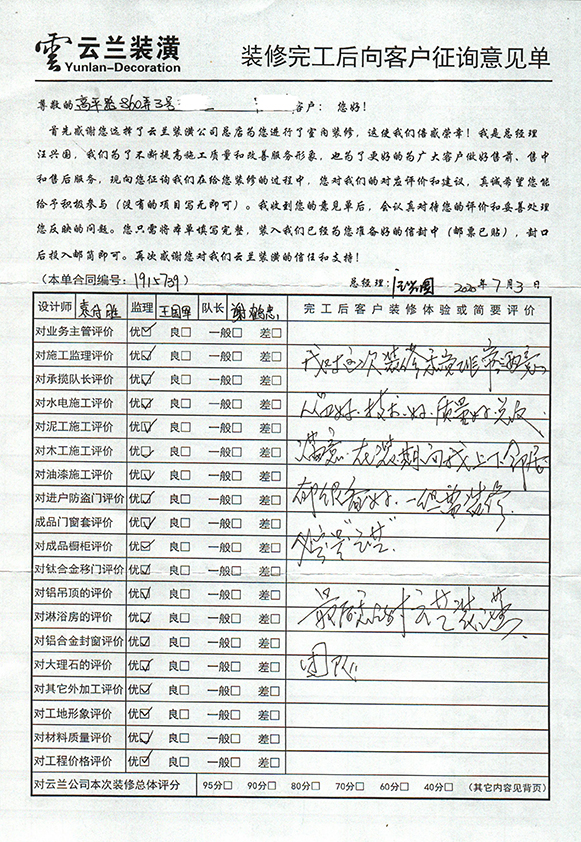 雲 云兰装潢
Yunlan-Decoration
装修完工后向客户征询意见单
尊敬的 高平路860弄3号 客户： 您好！
首先感谢您选择了云兰装潢公司总店为您进行了室内装修，这使我们倍感荣幸！我是总经理
汪兴国，我们为了不断提高施工质量和改善服务形象，也为了更好的为广大客户做好售前、售中
和售后服务，现向您征询我们在给您装修的过程中，您对我们的对应评价和建议，真诚希望您能
给予积极参与（没有的项目写无即可）。我收到您的意见单后，会认真对待您的评价和妥善处理
您反映的问题。您只需将本单填写完整，装入我们已经为您准备好的信封中（邮票已贴），封口
后投入邮筒即可。再次感谢您对我们云兰装潢的信任和支持！
（本单合同编号：1915739） 总经理：汪兴国 2020年7月3日
设计师 监理 王国军 队长 完工后客户装修体验或简要评价
对业务主管评价 优☑ 良□ 一般□ 差□
对施工监理评价 优☑ 良□ 一般□ 差□ 我对这次装修非常
对承揽队长评价 优☑ 良□ 一般□ 差□
对水电施工评价 优☑ 良□ 一般□ 差□ 技术好．质量好
对泥工施工评价 优☑ 良□ 一般□ 差□
对木工施工评价 优☑ 良□ 一般□ 差□ 满意．在装期间我上下邻居
对油漆施工评价 优☑ 良□ 一般□ 差□
对进户防盗门评价 优☑ 良□ 一般□ 差□ 都很看好．装修
成品门窗套评价 优☑ 良□ 一般□ 差□
对成品橱柜评价 优☑ 良□ 一般□ 差□
对钛合金移门评价 优☑ 良□ 一般□ 差□
对铝吊顶的评价 优☑ 良□ 一般□ 差□ 最后
对淋浴房的评价 优☑ 良□ 一般□ 差□
对铝合金封窗评价 优☑ 良□ 一般□ 差□
对大理石的评价 优☑ 良□ 一般□ 差□ 团队
对其它外加工评价 优☑ 良□ 一般□ 差□
对工地形象评价 优☑ 良□ 一般□ 差□
对材料质量评价 优☑ 良□ 一般□ 差□
对工程价格评价 优☑ 良□ 一般□ 差□
对云兰公司本次装修总体评分 95分□ 90分□ 80分□ 70分□ 60分□ 40分□ （其它内容见背页）